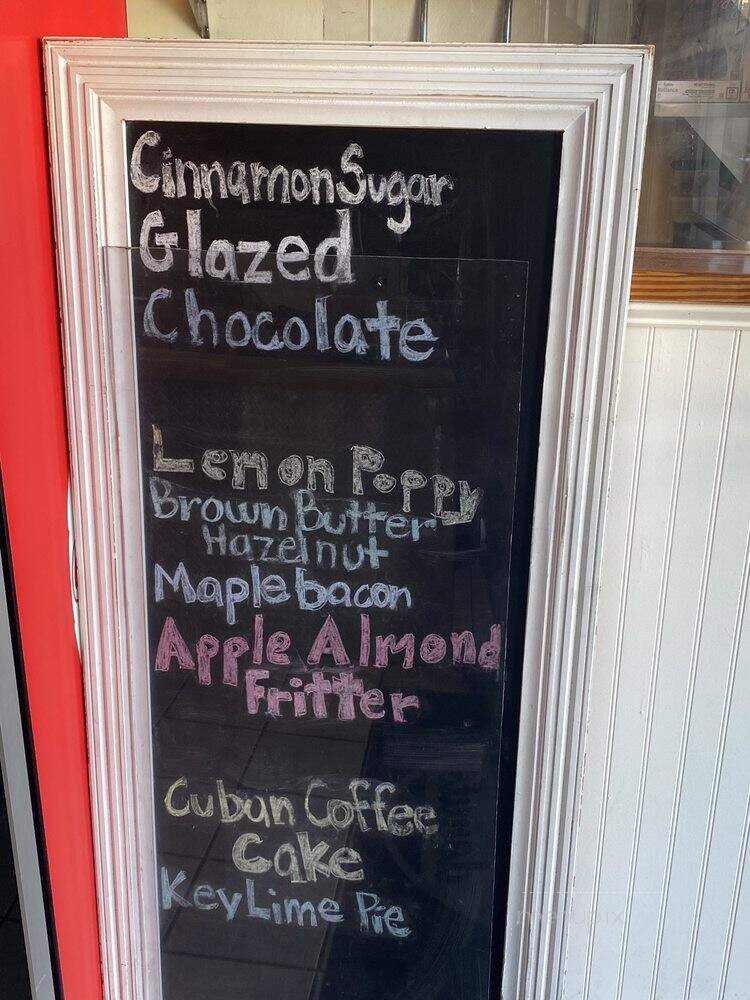 Cinnamon Sugar
Glazed
Chocolate
Lemon Poppy
Brown Butter
Hazelnut
Maple bacon
Apple Almond
Fritter
Cuban Coffee
Cake
Key Lime Pie